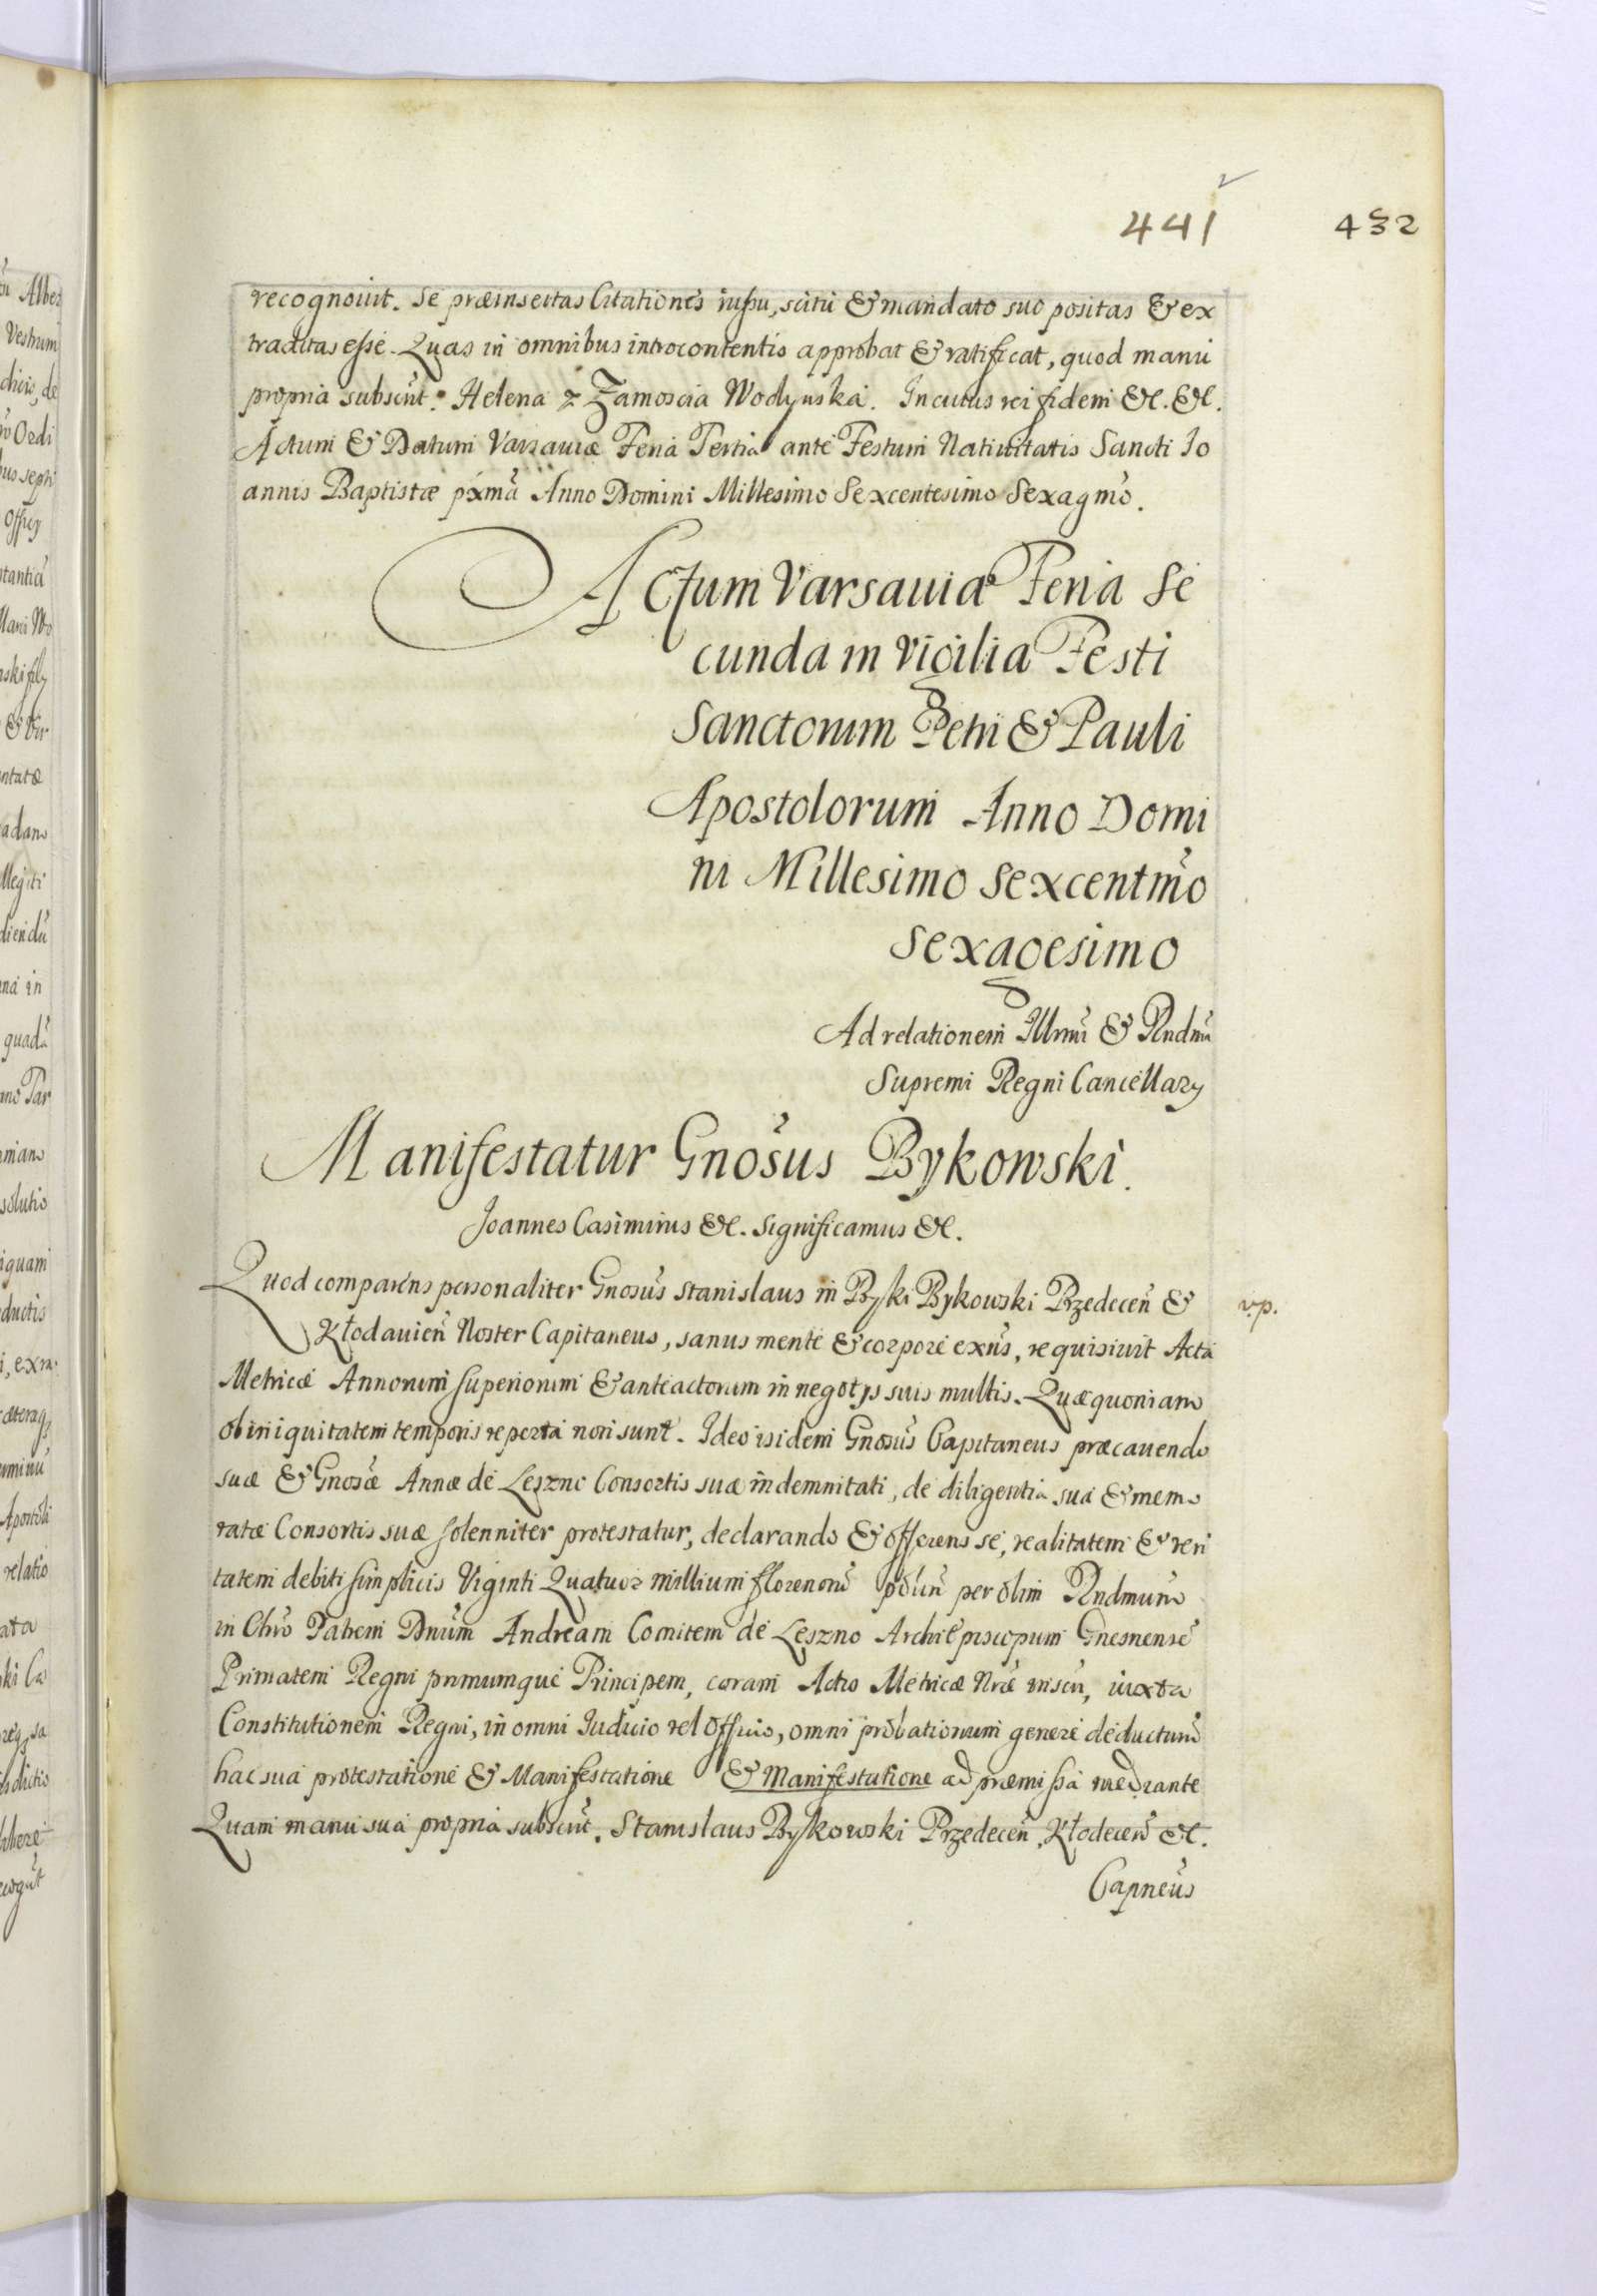 441
432
recognovit. Se præinsertas Citationes iussu, scitu & mandato suo positas & ex
traditas esse. Quas in omnibus introcontentis approbat & ratificat, quod manu
propria subscrit. Helena z Zamoscia Wodynska. In cuius rei fidem &c. &c.
Actum & Datum Varsauiæ Feria Tertia ante Festum Natiuitatis Sancti Io
annis Baptistæ pxma Anno Domini Millesimo Sexcentesimo Sexagmo.
Actum Varsauiæ Feria Se
cunda in Vigilia Festi
Sanctorum Petri & Pauli
Apostolorum Anno Domi
ni Millesimo Sexcentmo
Sexagesimo
Ad relationem Illrmi & Rndmi
Supremi Regni Cancellary
Manifestatur Gnosus Bykowski.
Joannes Casimirus &c. Significamus &c.
Quod comparens personaliter Gnosus Stanislaus in Byki Bykowski Przedecen &
v.p.
Kłodauien Noster Capitaneus, sanus mente & corpore exns, requisiuit Acta
Metricæ Annorum superiorum & anteactorum in negotys suis multis. Quæ quoniam
ob iniquitatem temporis reperta non sunt. Ideo isidem Gnosus Capitaneus præcauendo
suæ & Gnosæ Annæ de Leszno Consortis suæ indemnitati, de diligentia sua & memo
ratæ Consortis suæ solenniter protestatur, declarando & offerens se, realitatem & veri
tatem debiti simplicis Viginti Quatuor millium florenorū per olim Rndmum
in Chro Patrem Dnum Andream Comitem de Leszno Archiepiscopum Gnesnensē
Primatem Regni primumque Principem, coram Actis Metricæ Nræ inscri, iuxta
Constitutionem Regni, in omni Iudicio vel Officio, omni probationum genere deducturū
hac sua protestatione & Manifestatione & Manifestatione ad præmissa mediante
Quam manu sua propria subscrit. Stanislaus Bykowski Przedecen. Kłodecen &c.
Capneus